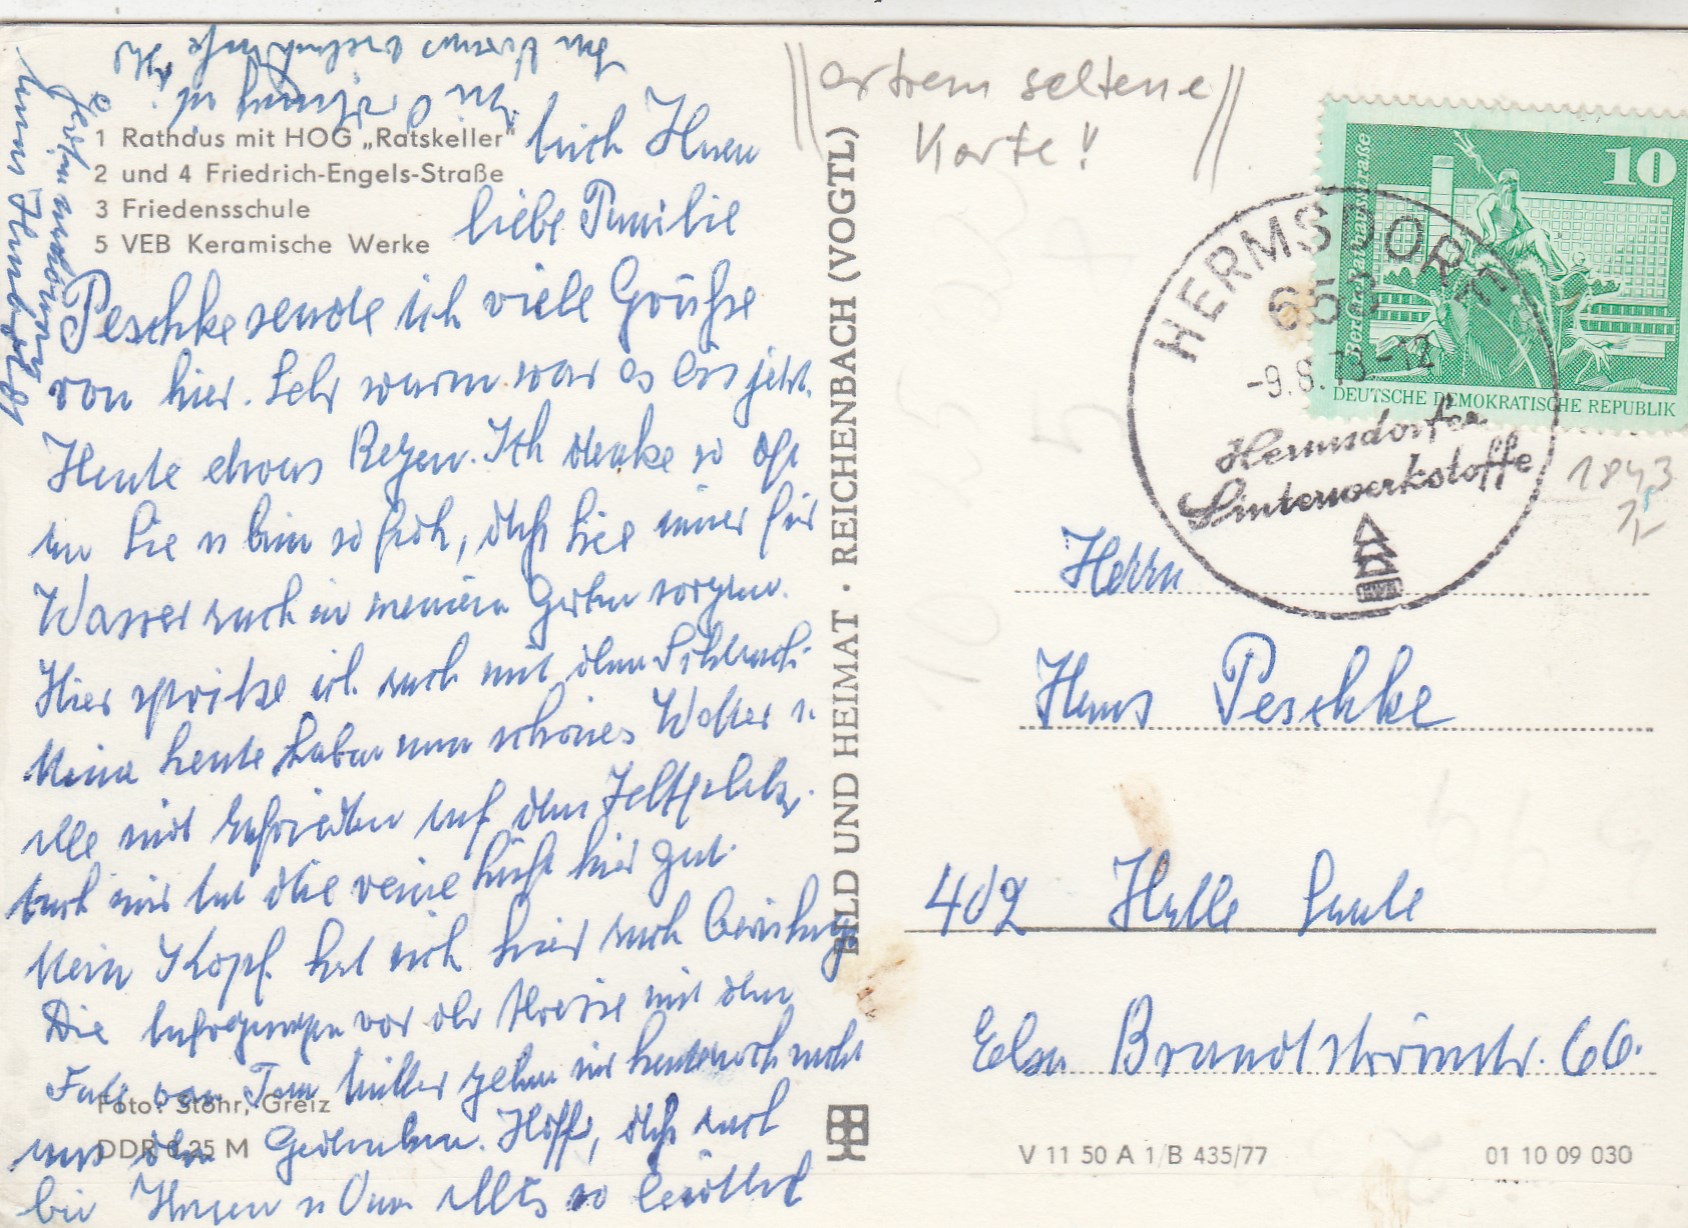 1 Rathaus mit HOG „Ratskeller"
2 und 4 Friedrich-Engels-Straße
3 Friedensschule
5 VEB Keramische Werke
Auch Ihnen
liebe Familie
Peschke sende ich viele Grüße
von hier. Sehr warm war es bis jetzt.
Heute etwas Regen. Ich denke so oft
an Sie u bin so froh, daß Sie immer für
Wasser auch in meinem Garten sorgen.
Hier spritze ich auch mit dem Schlauch.
heute haben nun schönes Wetter u.
alle sind zufrieden auf dem Zeltplatz.
Auch mir tut die reine Luft hier gut.
Mein Kopf hat sich hier auch beruhigt
Die vor der Abreise mit dem
Fall von gehen mir heute noch nicht
aus dem Gedenken. Hoffe, daß auch
bei Ihnen u Oma alles so
BILD UND HEIMAT · REICHENBACH (VOGTL)
Foto: Stöhr, Greiz
DDR 0,25 M
extrem seltene
Karte!
10
Berlin, Rathausstraße
DEUTSCHE DEMOKRATISCHE REPUBLIK
HERMSDORF
653
-9.8.78-12
Hermsdorfer
Sinterwerkstoffe
1843
Herrn
Hans Peschke
402 Halle Saale
Elsa Brandströmstr. 66.
V 11 50 A 1/B 435/77
01 10 09 030